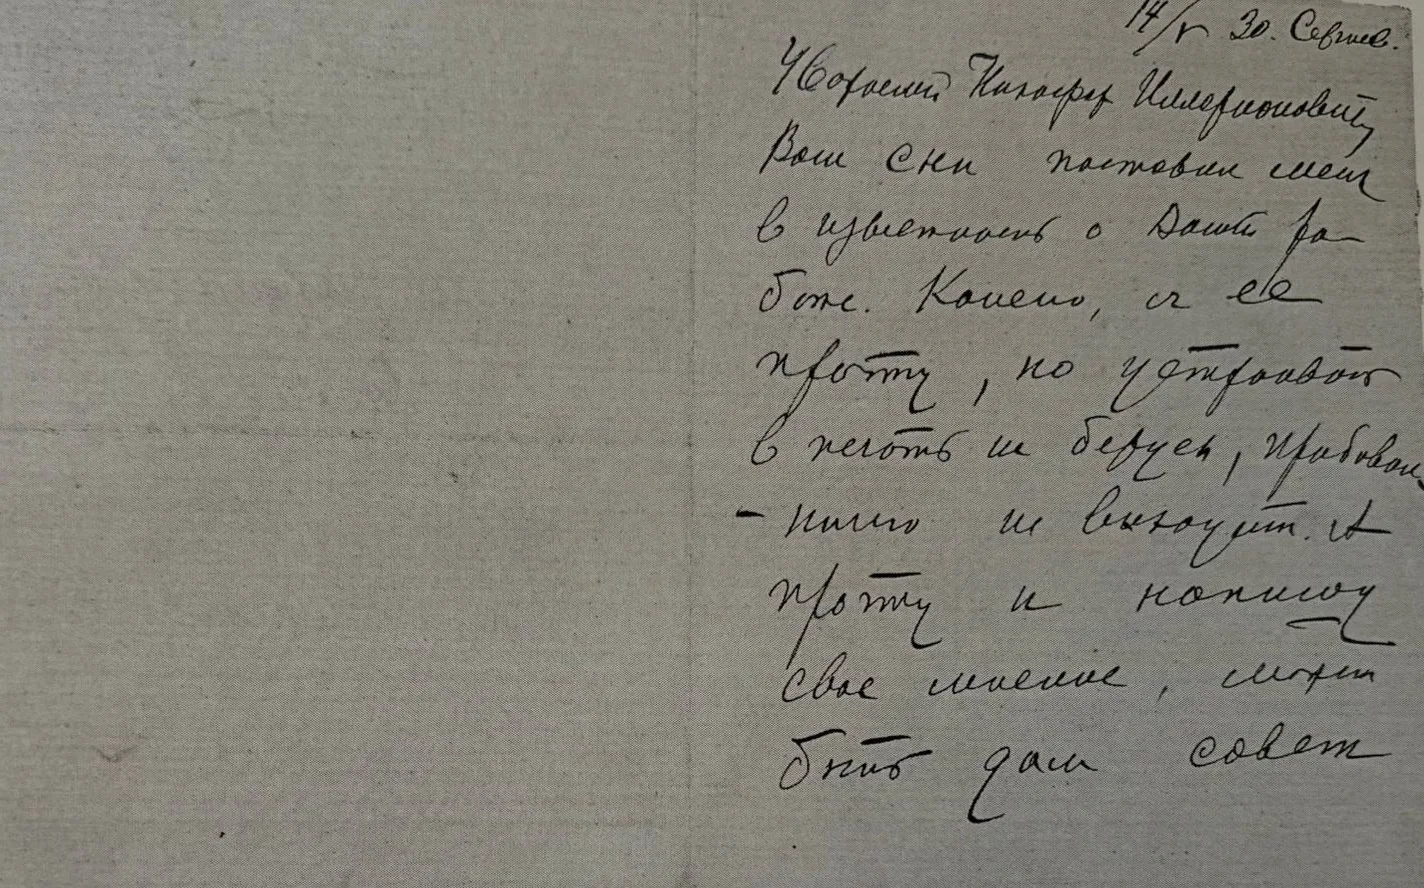 14/V 30. Сергиев.
Уважаемый Никифор Илларионович,
Ваш сын поставил меня
в известность о Вашей ра-
боте. Конечно, я ее
прочту, но устраивать
в печать не берусь, пробовал
- ничего не выходит. А
прочту и напишу
свое мнение, может
быть дам совет